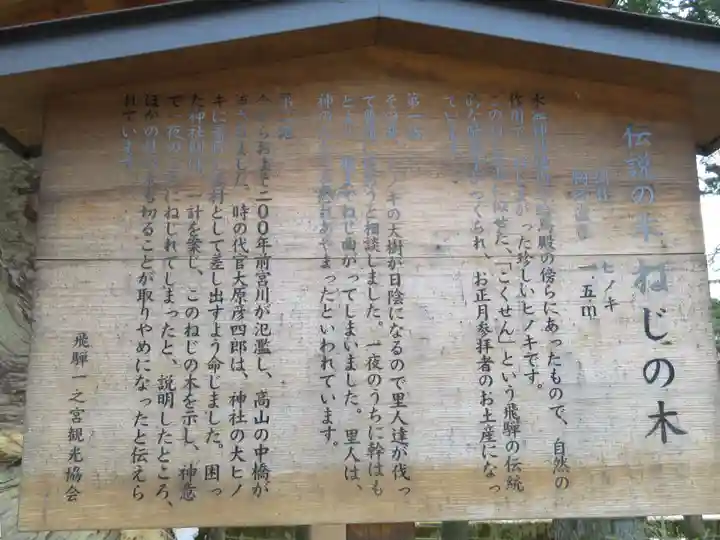 伝説の木 ねじの木
ヒノキ
一・五m
水無神社 殿の傍らにあったもので、自然の
った珍しいヒノキです。
せた、「こくせん」という飛騨の伝統
つくられ、お正月参拝者のお土産になっ
ています。
第一話
その昔、ヒノキの大樹が日陰になるので里人達が伐っ
て 相談しました。一夜のうちに幹はも
ねじ曲がってしまいました。里人は、
神 れあやまったといわれています。
第二話
およそ二00年前宮川が氾濫し、高山の中橋が
ました。時の代官大原彦四郎は、神社の大ヒノ
キに 材として差し出すよう命じました。困っ
た神社側は、一計を案じ、このねじの木を示し、神意
で一夜の にねじれてしまったと、説明したところ、
ほかの 切ることが取りやめになったと伝えら
れています。
飛騨一之宮観光協会